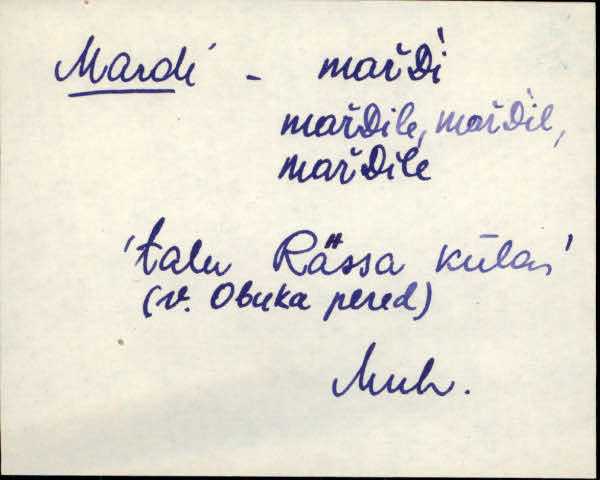 Mardi - mařDi
mařDile, mařDil,
mařDile
'talu Rässa külas'
(v. Obuka pered)
Muh.